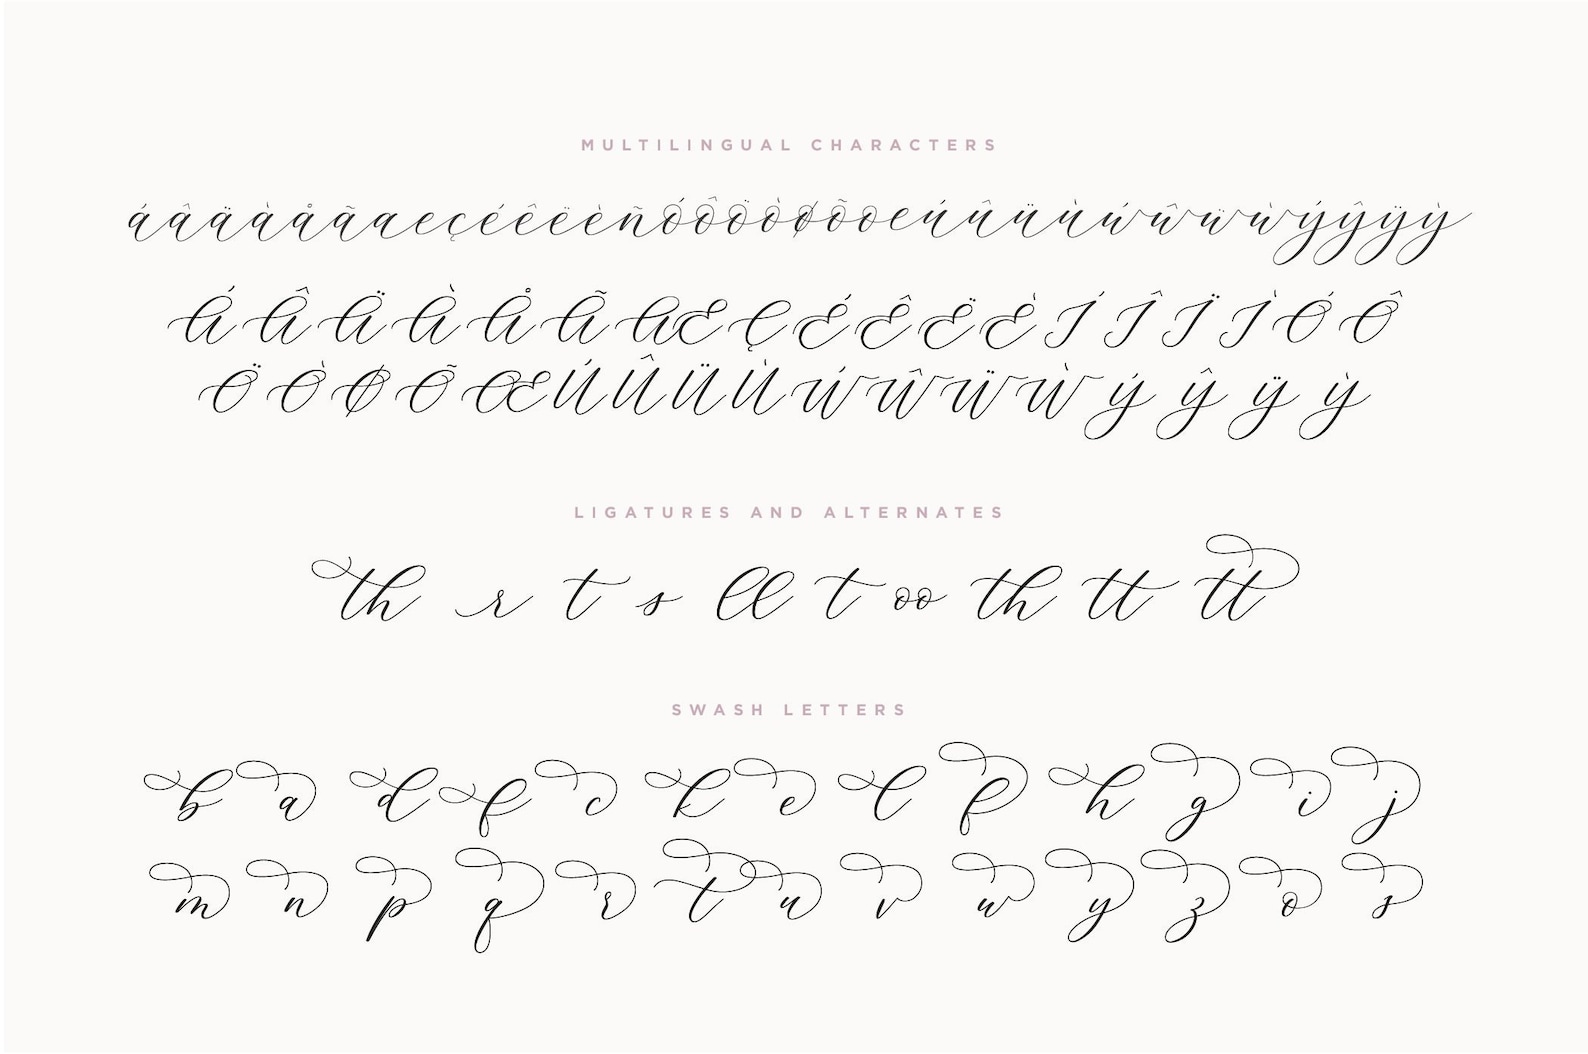 MULTILINGUAL CHARACTERS
áâäàåãaeçéêëèñóôöòøõoeúûüùẃŵẅẁýŷÿỳ
ÁÂÄÀÅÃAEÇÉÊËÈÍÎÏÌÓÔ
ÖÒØÕŒÚÛÜÙẂŴẄẀÝŶŸỲ
LIGATURES AND ALTERNATES
th r t s ll t oo th tt tt
SWASH LETTERS
b a d f c k e l f h g i j
m n p q r t u v w y z o s